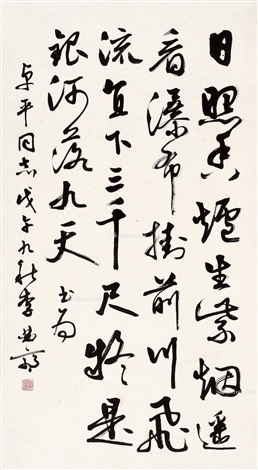 日照香爐生紫烟遥
看瀑布掛前川飛
流直下三千尺疑是
銀河落九天 书为
卓平同志戊午九秋李曲齋